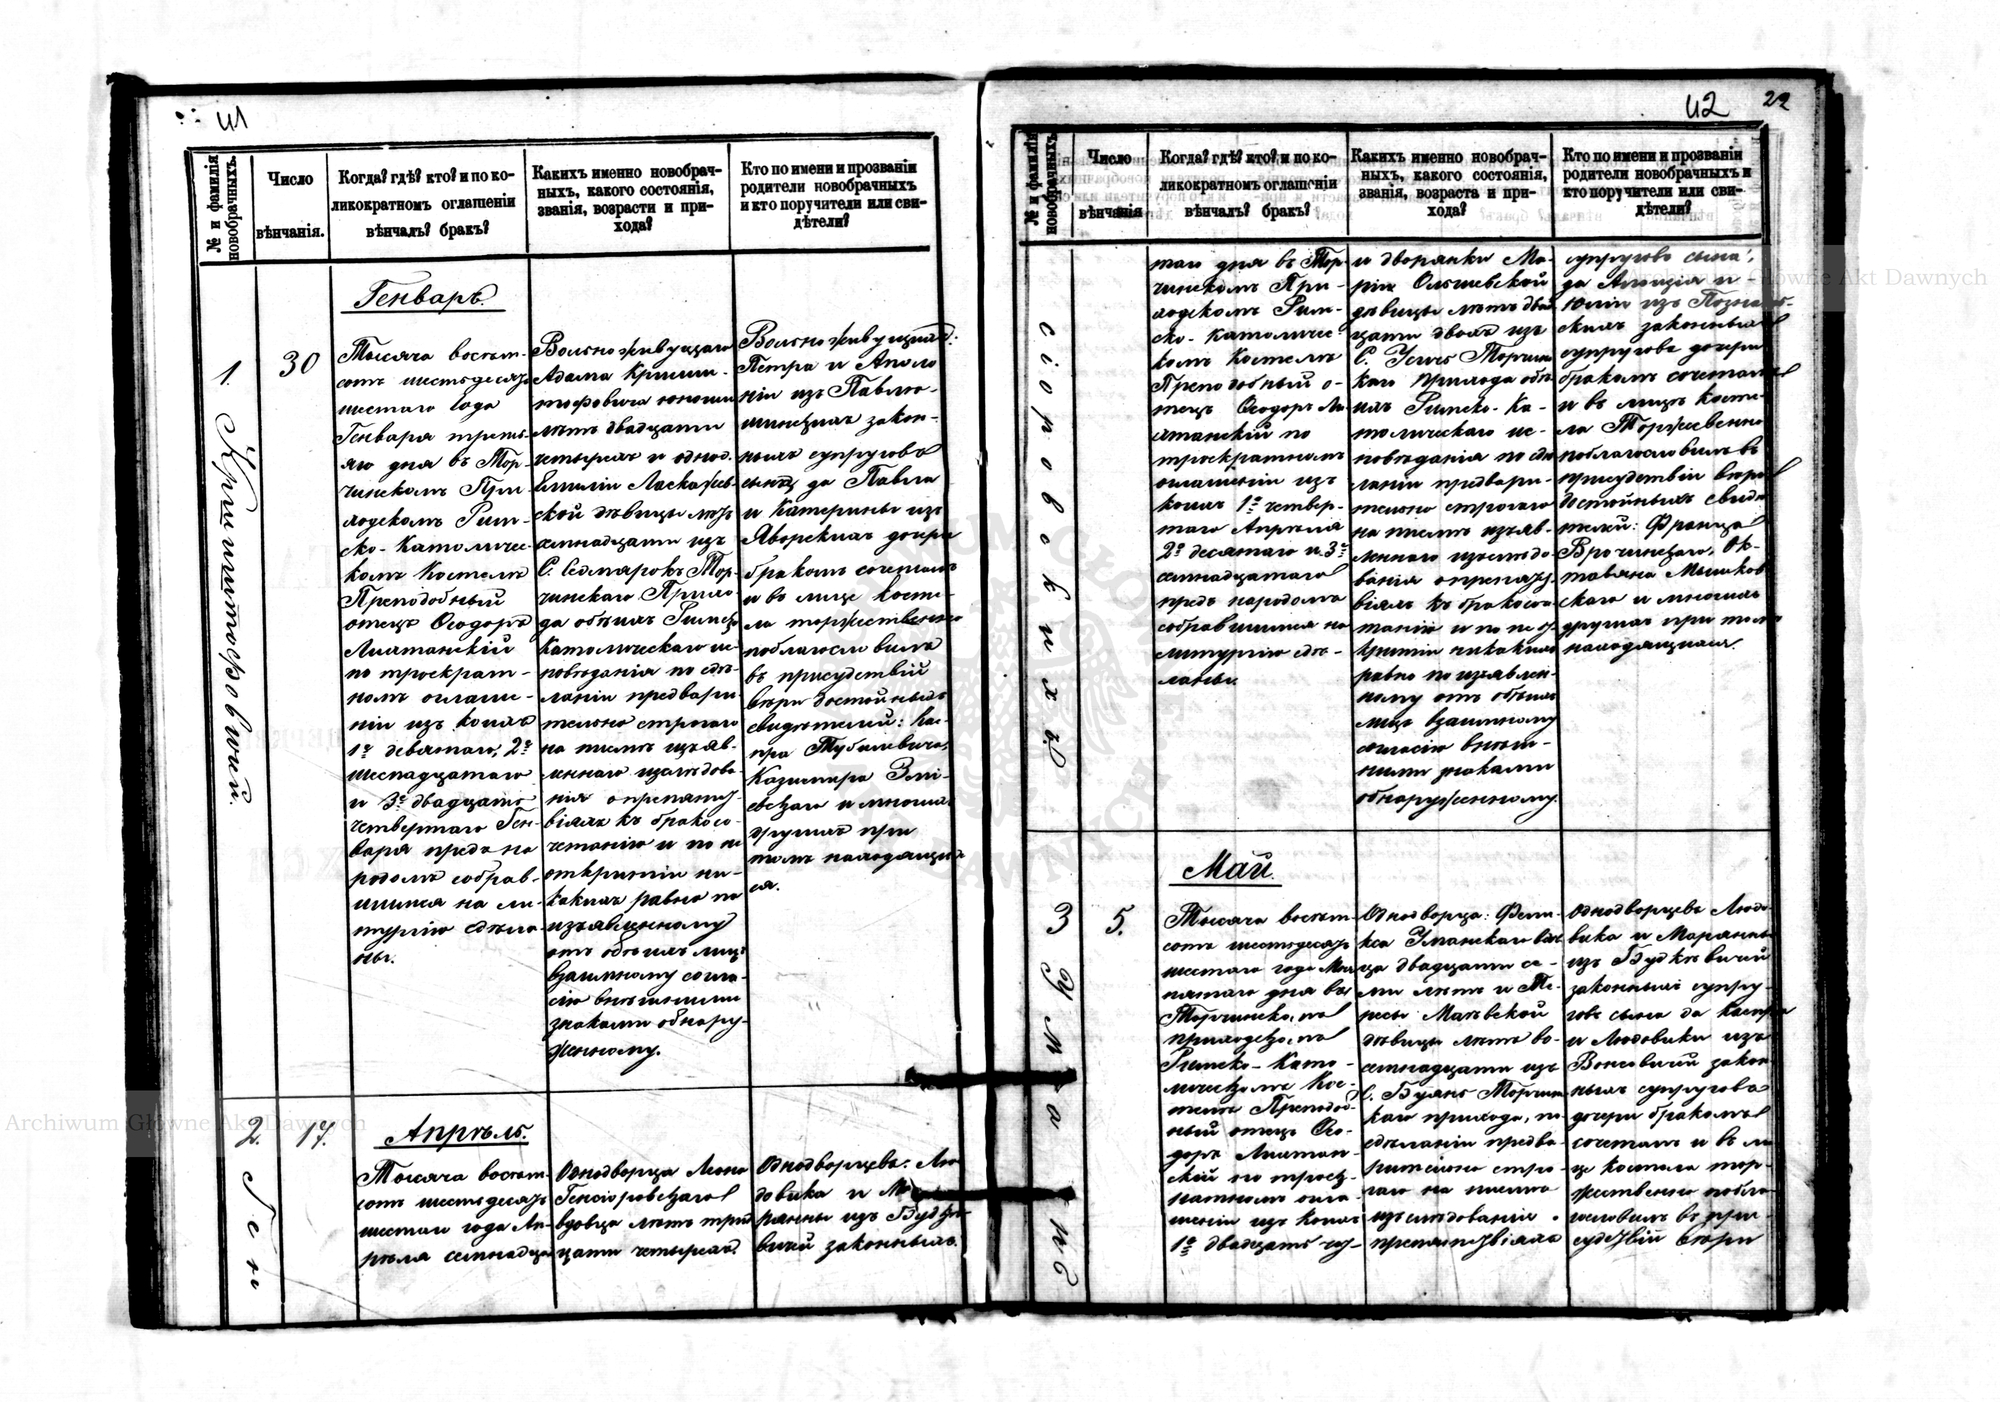 41
№ и фамилія новобрачныхъ.
Число вѣнчанія.
Когда? гдѣ? кто? и по ко-
ликократномъ оглашеніи
вѣнчалъ? бракъ?
Какихъ именно новобрач-
ныхъ, какого состоянія,
званія, возрасти и при-
хода?
Кто по имени и прозваніи
родители новобрачныхъ
и кто поручители или сви-
дѣтели?
1.
30
Генварь.
Тысяча восемь-
сотъ шестьдесятъ
шестаго года
Генваря треть-
яго дня въ Тор-
чинскомъ При-
ходскомъ Рим-
ско-Католичес-
комъ Костелѣ
Преподобный
отецъ Ѳеодоръ
по троекрат-
номъ оглаше-
ніи изъ коихъ
1е девятаго, 2е
шеснадцатаго
и 3е двадцать
четвертаго Ген-
варя предъ на
родомъ собрав-
шимся на ли-
тургію сдѣла
ны.
Вольноживущаго
Адама Кришш-
тофовича юноши
лѣтъ двадцати
четырехъ и однод.
Емиліи Ласкажев-
ской дѣвицы лѣтъ
семнадцати изъ
С. Седмярокъ Тор-
чинскаго Прихо-
да обѣихъ Римско
Католическаго ис-
повѣданія по сдѣ-
ланіи предвари-
тельно строгаго
на письмѣ изъяв-
леннаго изслѣдова-
нія о препятст-
віяхъ къ бракосо-
четанію и по не
открытіи ни-
какихъ равно по
изъявленному
отъ обѣихъ лицъ
взаимному согла-
сію внѣшними
знаками обнару-
женному.
Вольноживущихъ:
Петра и Аполо
ніи изъ Павлю-
шинскихъ закон-
ныхъ супруговъ
сына, да Павла
и Катерины изъ
Яворскихъ дочерь
бракомъ сочеталъ
и въ лице косте-
ла торжественно
поблагословилъ
въ присудствіи
вѣры достойныхъ
свидѣтелей: Кас-
Казимира
и многихъ
другихъ при
томъ находящих
ся.
2.
17.
Апрѣль.
Тысяча восемь-
сотъ шестьдесятъ
шестаго года Ап-
рѣля семнадца
Однодворца Леона
Генсіоровскаго
вдовца лѣтъ трид
цати четырехъ
Однодворцевъ: Лю
довика и Ма
рянны изъ Будкѣ-
вичей законныхъ
42
22
№ и фамилія новобрачныхъ.
Число
вѣнчанія
Когда? гдѣ? кто? и по ко-
ликократномъ оглашеніи
вѣнчалъ? бракъ?
Какихъ именно новобрач-
ныхъ, какого состоянія,
званія, возраста и при-
хода?
Кто по имени и прозваніи
родители новобрачныхъ и
кто поручители или сви-
дѣтели?
таго дня въ Тор-
чинскомъ При-
ходскомъ Рим-
ско-Католичес-
комъ Костелѣ
Преподобный о-
тецъ Ѳеодоръ
по
троекратномъ
оглашеніи изъ
коихъ 1е четвер-
таго Апрѣля
2е десятаго и 3е
семнадцатаго
предъ народомъ
собравшимся на
литургію сдѣ-
ланы.
и дворянки Ма-
ріи Ольшевской
дѣвицы лѣтъ двад
цати двохъ изъ
С. Усичъ Торчинс
каго Прихода обѣ
ихъ Римско-Ка-
толическаго ис-
повѣданія по сдѣ
ланіи предвари-
тельно строгаго
на письмѣ изъяв-
леннаго изслѣдо-
ванія о препятст-
віяхъ къ бракосоче
танію и по неот
крытіи никакихъ
равно по изъявлен-
ному отъ обѣихъ
лицъ взаимному
согласію внѣш-
ними знаками
обнаруженному.
супруговъ сына,
да Алоизія и
Юліи изъ Познанс-
кихъ законныхъ
супруговъ дочерь
бракомъ сочеталъ
и въ лицѣ косте-
ла Торжественно
поблагословилъ въ
присудствіи вѣры
достойныхъ свидѣ
телей: Франца
Врочинскаго, Ок-
тавяна Мышков
скаго и многихъ
другихъ при томъ
находящихся.
3
5.
Май.
Тысяча восемь-
сотъ шестьдесятъ
шестаго года Мая
пятаго дня въ
Торчинскомъ
приходскомъ
Римско-Като-
лическомъ Кос-
телѣ Преподоб-
ный отецъ Ѳео-
доръ
по троек-
ратномъ огла-
шеніи изъ коихъ
1е двадцать че-
Однодворца: Фели-
кса Уманскаго
двадцати се-
ми лѣтъ и Те-
ресы Маевской
дѣвицы лѣтъ во-
семнадцати изъ
С. Буянъ Торчинс
каго прихода, по
сдѣланіи предва-
рительно стро-
гаго на письмѣ
изслѣдованія о
препятствіяхъ
Однодворцевъ Людо-
вика и Марянны
изъ Будкѣвичей
законныхъ супру-
говъ сына да Каспра
и Людовики изъ
закон-
ныхъ супруговъ
дочерь бракомъ
сочеталъ и въ ли-
це костела тор-
жественно побла-
гословилъ въ при-
судствіи вѣры
Archiwum Główne Akt Dawnych
Archiwum Główne Akt Dawnych